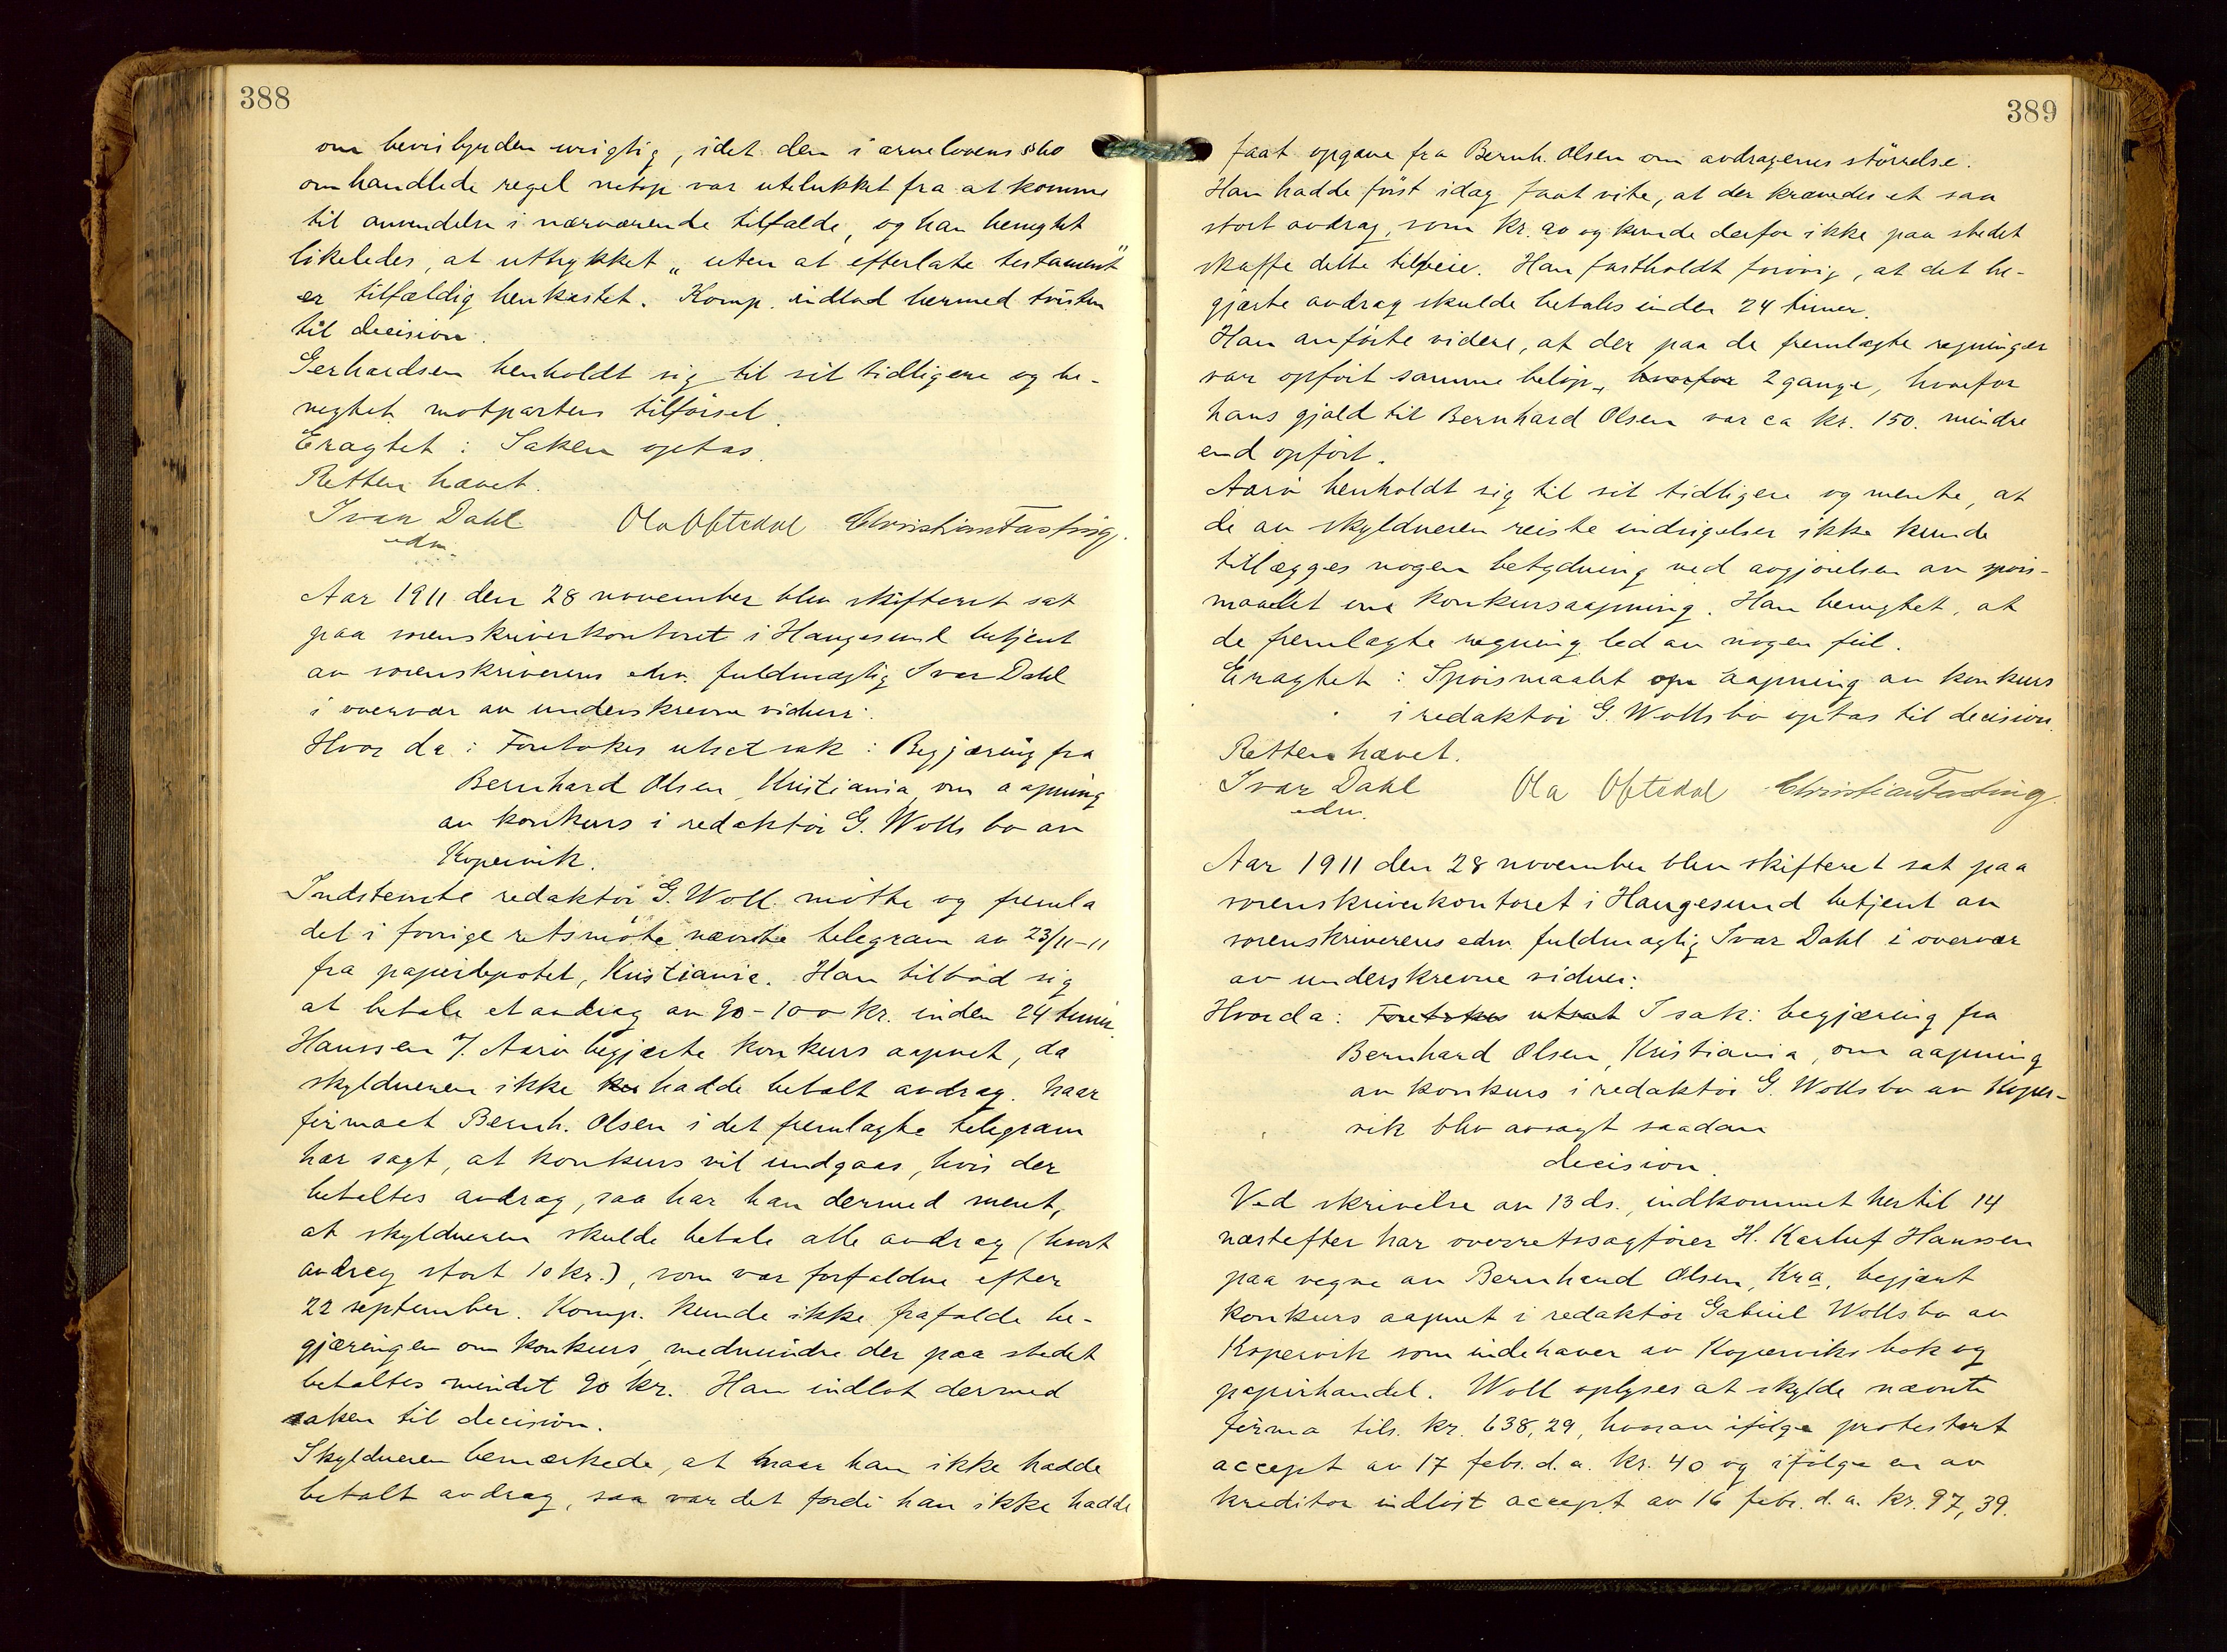 388
om bevisbyrden urigtig, idet den i arvelovens § 60
omhandlede regel netop var utelukket fra at komme
til anvendelse i nærværende tilfælde, og han benegtet
likeledes, at uttrykket „uten at efterlate testament"
er tilfældig henkastet. Komp. indlod hermed tvisten
til decision.
Gerhardsen henholdt sig til sit tidligere og be-
negtet motpartens tilførsel.
Eragtet: Saken optas.
Retten hævet.
Ivar Dahl Ola Oftedal Christian Fasting.
edm.
Aar 1911 den 28 november blev skifteret sat
paa sorenskriverkontoret i Haugesund betjent
av sorenskriverens edm. fuldmægtig Ivar Dahl
i overvær av underskrevne vidner:
Hvor da: Foretokes utsat sak: Begjæring fra
Bernhard Olsen, Kristiania, om aapning
av konkurs i redaktør G. Wolls bo av
Kopervik.
Indstevnte redaktør G. Woll møtte og fremla
det i forrige retsmøte nævnte telegram av 23/11-11
fra papirdepotet, Kristiania. Han tilbød sig
at betale et avdrag av 90-100 kr. inden 24 timer.
Hanssen v/ Aarø begjærte konkurs aapnet, da
skyldneren ikke hadde betalt avdrag. Naar
firmaet Bernh. Olsen i det fremlagte telegram
har sagt, at konkurs vil undgaaes, hvis der
betaltes avdrag, saa har han dermed ment,
at skyldneren skulde betale alle avdrag (hvert
avdrag stort 10 kr.), som var forfaldne efter
22 september. Komp. kunde ikke frafalde be-
gjæringen om konkurs, medmindre der paa stedet
betaltes mindst 90 kr. Han indlot dermed
saken til decision.
Skyldneren bemærkede, at naar han ikke hadde
betalt avdrag, saa var det fordi han ikke hadde
389
faat opgave fra Bernh. Olsen om avdragenes størrelse.
Han hadde først idag faat vite, at der krævedes et saa
stort avdrag, som kr. 90 og kunde derfor ikke paa stedet
skaffe dette tilveie. Han fastholdt forøvrig, at det be-
gjærte avdrag skulde betales inden 24 timer.
Han anførte videre, at der paa de fremlagte regninger
var opført samme beløp, hvorfor 2 gange, hvorfor
hans gjæld til Bernhard Olsen var ca kr. 150. mindre
end opført.
Aarø henholdt sig til sit tidligere og mente, at
de av skyldneren reiste indsigelser ikke kunde
tillægges nogen betydning ved avgjørelsen av spørs-
maalet om konkursaapning. Han benegtet, at
de fremlagte regning led av nogen feil.
Eragtet: Spørsmaalet om aapning av konkurs
i redaktør G. Wolls bo optas til decision.
Retten hævet.
Ivar Dahl Ola Oftedal Christian Fasting.
edm.
Aar 1911 den 28 november blev skifteret sat paa
sorenskriverkontoret i Haugesund betjent av
sorenskriverens edm. fuldmægtig Ivar Dahl i overvær
av underskrevne vidner:
Hvorda: Foretokes utsat I sak: begjæring fra
Bernhard Olsen, Kristiania, om aapning
av konkurs i redaktør G. Wolls bo av Koper-
vik blev avsagt saadan
decision.
Ved skrivelse av 13 ds., indkommet hertil 14
næstefter har overretssagfører H. Karluf Hanssen
paa vegne av Bernhard Olsen, Kra, begjært
konkurs aapnet i redaktør Gabriel Wolls bo av
Kopervik som indehaver av Koperviks bok og
papirhandel. Woll oplyses at skylde nævnte
firma tils. kr. 638,29, hvorav ifølge protestert
accept av 17 febr. d. a. kr. 40 og ifølge en av
kreditor indløst accept av 16 febr. d. a. kr. 97,39.